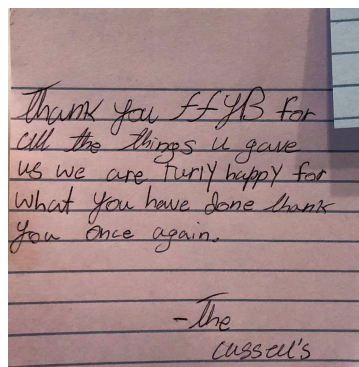 Thank you ffyB for
all the things u gave
us we are furly happy for
what you have done thank
you once again.
-The
cussell's